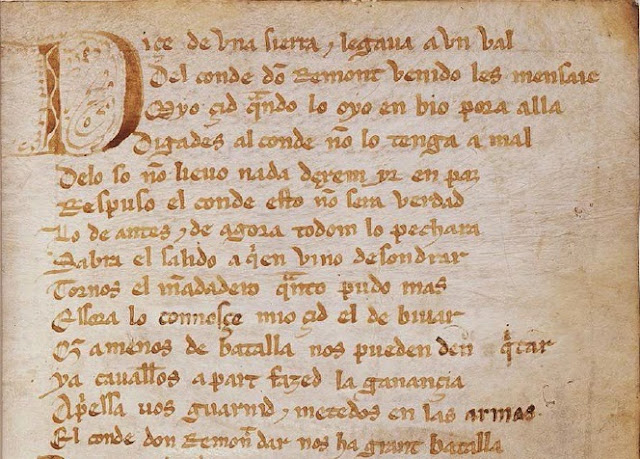 Diçe de vna sierra ⁊ legaua a vn val
Del conde dõ Remont venido les mensaie
Myo çid qͣndo lo oyo en bio pora alla
Digades al conde nõ lo tenga a mal
Delo so nõ lieuo nada dexem yr en paz
Respuso el conde esto nõ sera verdad
Lo de antes ⁊ de agora todom lo pechara
Sabra el salido a qͥen vino desondrar
Tornos el mãdadero qͣnto pudo mas
Essora lo connosçe mio çid el de biuar
Q̃ a menos de batalla nos pueden den qͥtar
ya caualłos apart fazed la ganançia
Apͥessa uos guarnid ⁊ metedos en las armas
El conde don Remont dar nos ha grant batalla